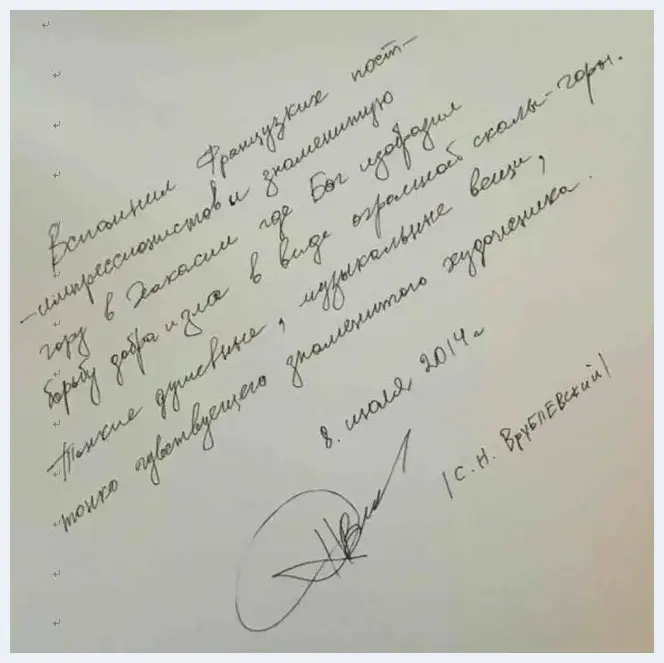 Вспомнил Французких пост-
-импрессионистов и знаменитую
гору в Хакасии где Бог изобразил
борьбу добра и зла в виде огромной скалы-горы.
Тонкие душевные, музыкальные вещи,
тонко чувствующего знаменитого художника.
8. июля 2014 г
/С. Н. ВРУБЛЕВСКИЙ/